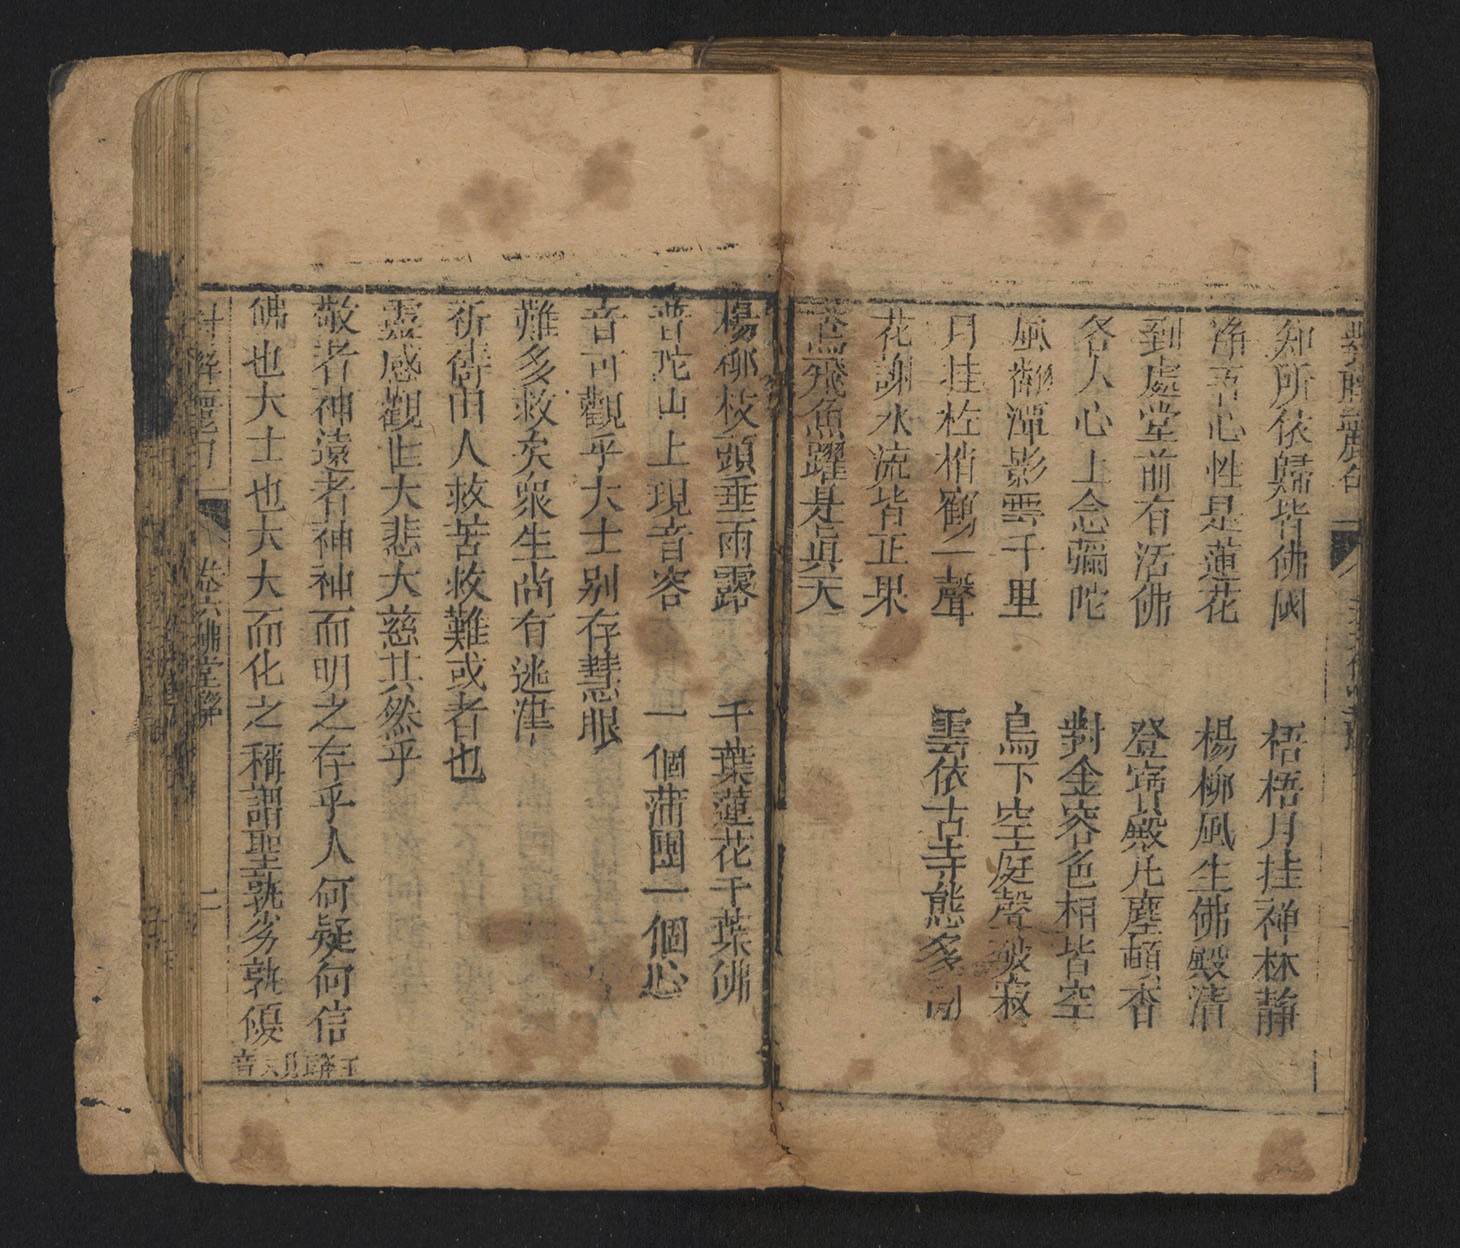 知所依歸皆佛國　梧梧月挂禅林靜
淨吾心性是蓮花　楊柳風生佛殿清
到處堂前有活佛　登寶殿凡塵頓杳
各人心上念彌陀　對金容色相皆空
風翻潭影雲千里　鳥下空庭聲破寂
月挂松梢鶴一聲　雲依古寺態多閒
花謝水流皆正果
鳶飛魚躍是眞天
楊柳枝頭垂雨露　千葉蓮花千葉佛
普陀山上現音容　一個蒲團一個心
音可觀乎大士别存慧眼
難多救矣衆生尚有迷津
祈禱由人救苦救難或者也
靈感觀世大悲大慈其然乎
敬者神遠者神神而明之存乎人何疑何信
佛也大士也大大而化之稱謂聖孰劣孰優
卷六佛堂聯
二